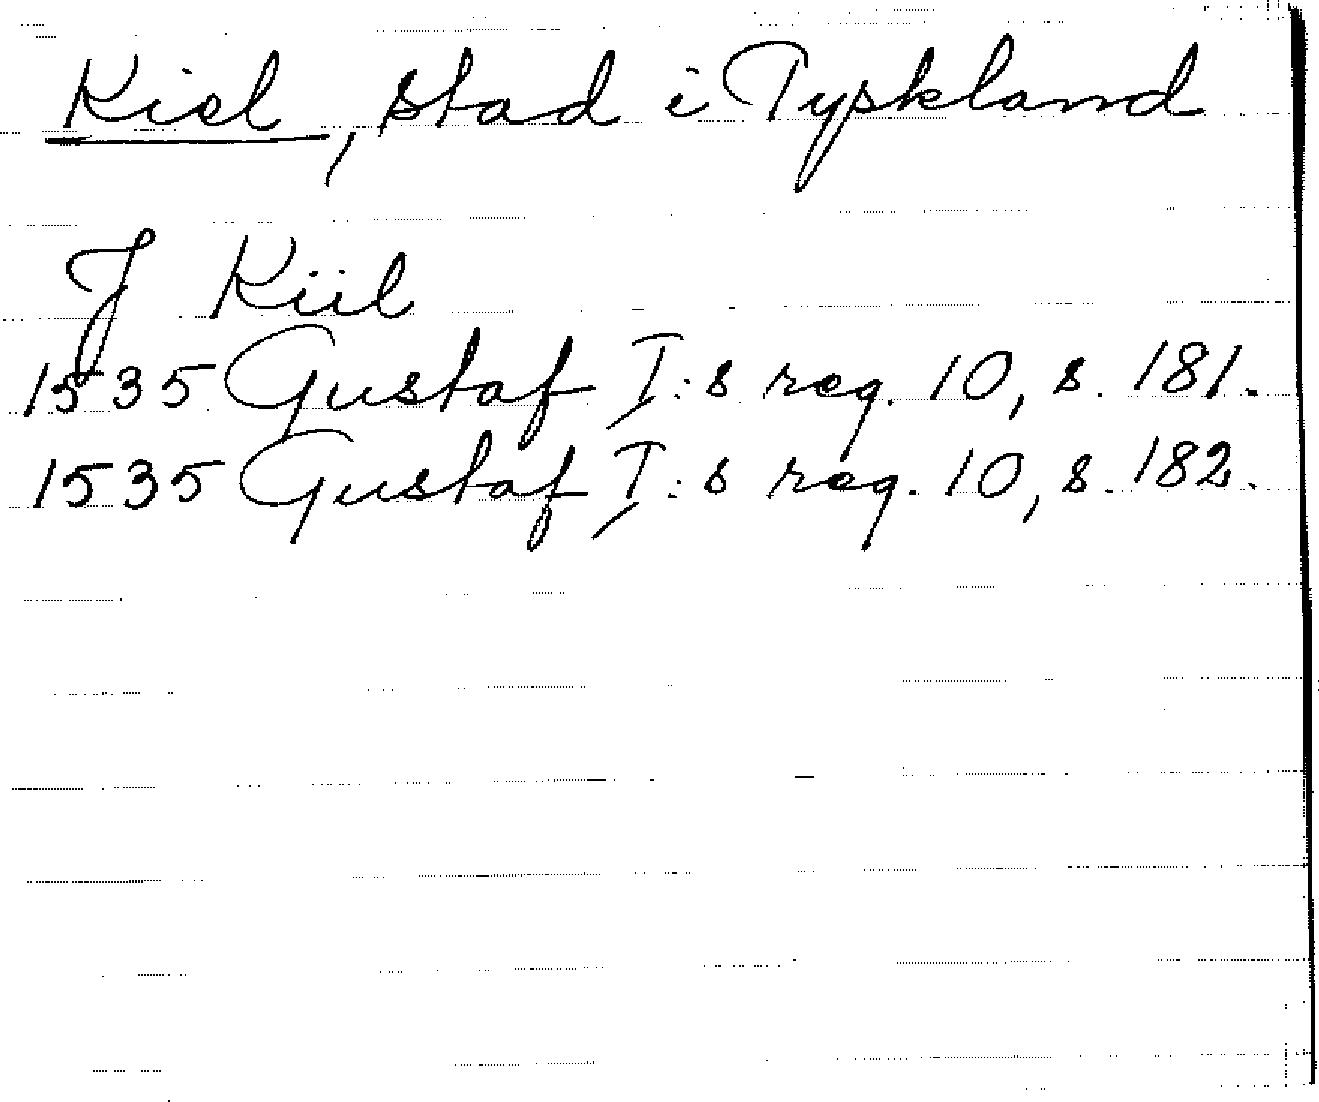 Kiel, stad i Tyskland
J Kiil
1535 Gustaf I:s reg. 10, s. 181.
1535 Gustaf I:s reg. 10, s. 182.